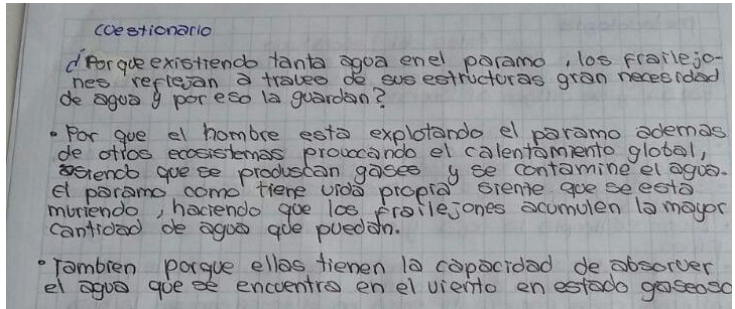 cuestionario
¿Porque existiendo tanta agua enel paramo, los frailejo-
nes reflejan a travee de sus estructuras gran necesidad
de agua y por eso la guardan?
• Por que el hombre esta explotando el paramo ademas
de otros ecosistemas provocando el calentamiento global,
que se produscan gases y se contamine el agua.
el paramo como tiene vida propia siente que se esta
muriendo, haciendo que los frailejones acumulen la mayor
cantidad de agua que puedan.
• Tambien porque ellos tienen la capacidad de absorver
el agua que se encuentra en el viento en estado gaseoso